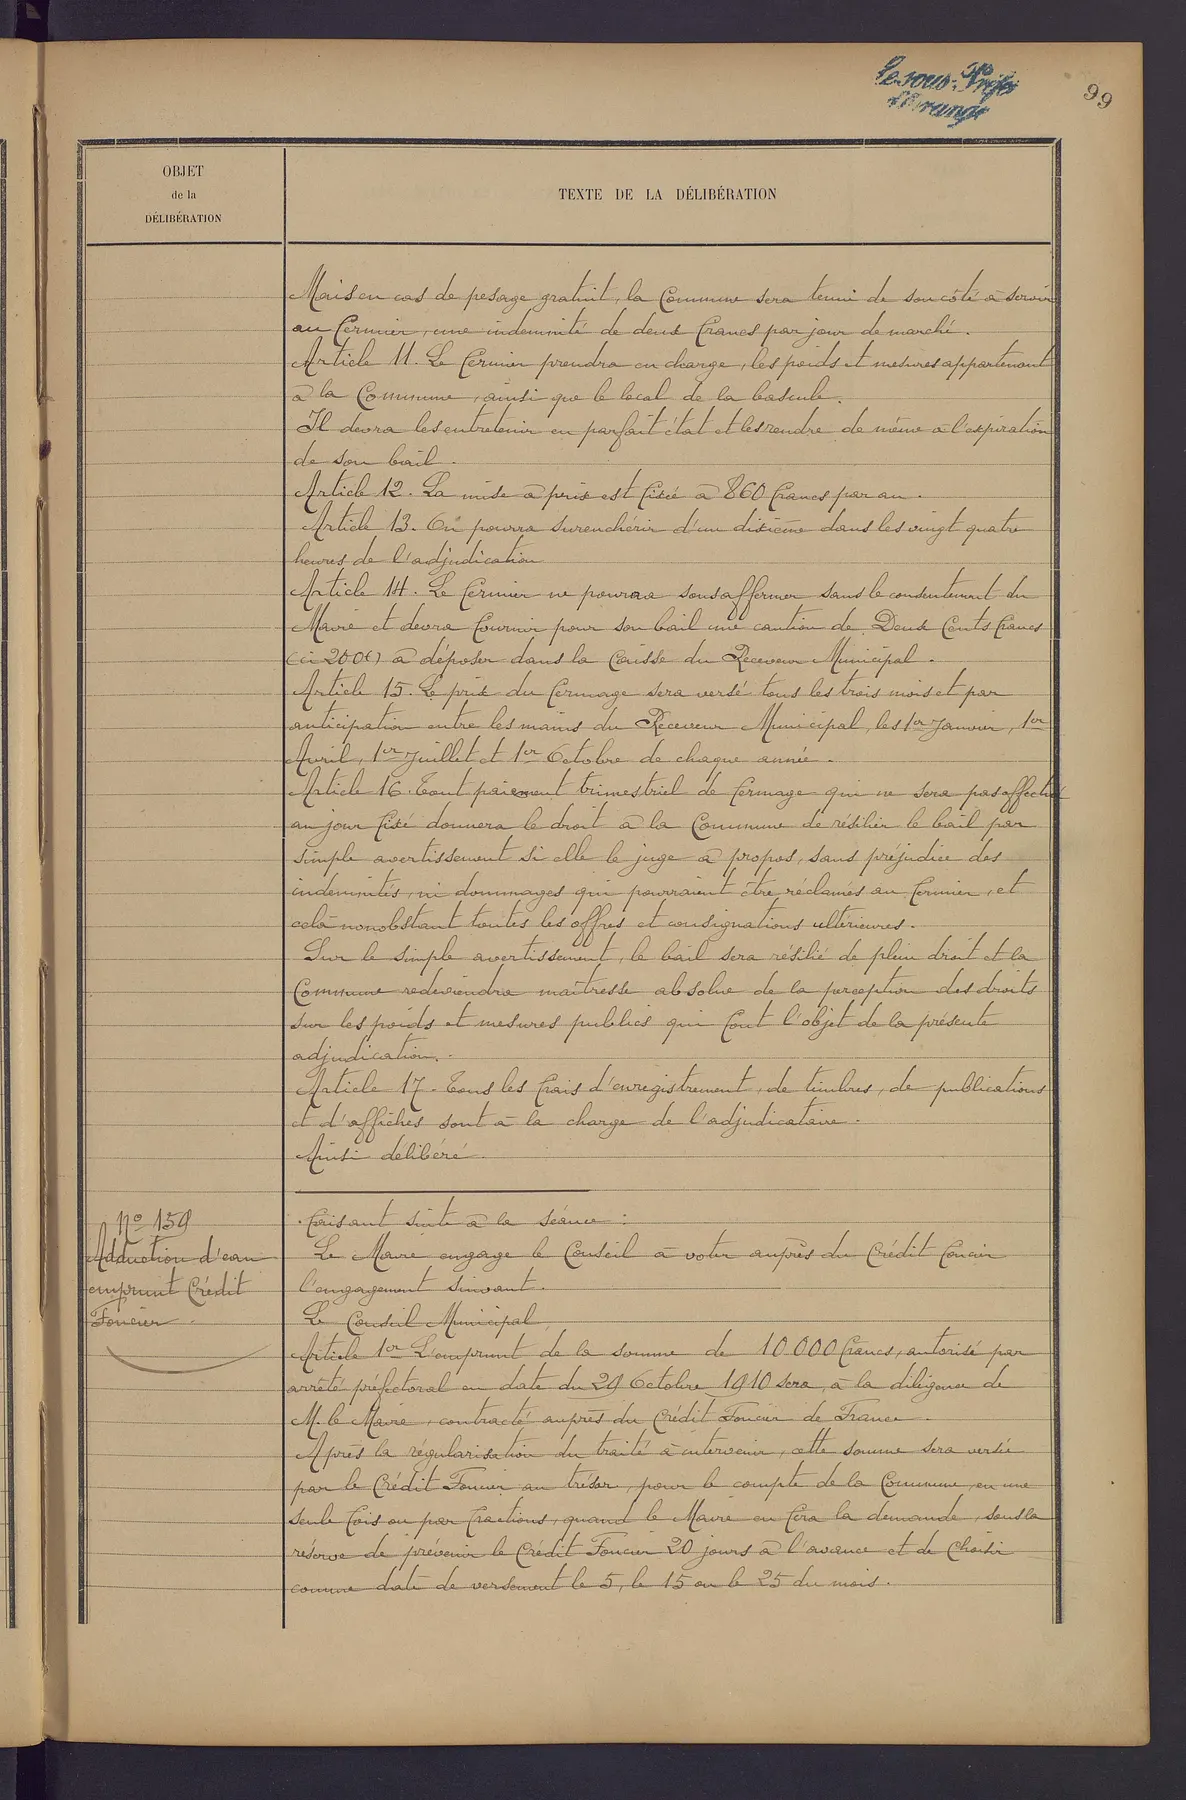 Le sous-Préfet
d'Orange
99
OBJET
de la
DÉLIBÉRATION
TEXTE DE LA DÉLIBÉRATION
Mais en cas de pesage gratuit, la Commune sera tenue de son côté à servir
au fermier, une indemnité de deux francs par jour de marché.
Article 11. Le fermier prendra en charge, les poids et mesures appartenant
à la Commune, ainsi que le local de la bascule.
Il devra les entretenir en parfait état et les rendre de même à l'expiration
de son bail.
Article 12. La mise à prix est fixée à 860 francs par an.
Article 13. On pourra surenchérir d'un dixième dans les vingt quatre
heures de l'adjudication
Article 14. Le fermier ne pourra sous affermer sans le consentement du
Maire et devra fournir pour son bail une caution de Deux Cents francs
(ci 200f) à déposer dans la Caisse du Receveur Municipal.
Article 15. Le prix du fermage sera versé tous les trois mois et par
anticipation entre les mains du Receveur Municipal, les 1er Janvier, 1er
Avril, 1er Juillet et 1er Octobre de chaque année.
Article 16. Tout paiement trimestriel de fermage qui ne sera pas effectué
au jour fixé donnera le droit à la Commune de résilier le bail par
simple avertissement si elle le juge à propos, sans préjudice des
indemnités, ni dommages qui pourraient être réclamés au fermier, et
celà nonobstant toutes les offres et consignations ultérieures.
Sur le simple avertissement, le bail sera résilié de plein droit et la
Commune redeviendra maîtresse absolue de la perception des droits
sur les poids et mesures publics qui font l'objet de la présente
adjudication.
Article 17. Tous les frais d'enregistrement, de timbres, de publications
et d'affiches sont à la charge de l'adjudicataire.
Ainsi délibéré.
No 159
Adduction d'eau
emprunt Crédit
Foncier.
Faisant suite à la séance :
Le Maire engage le Conseil à voter auprès du Crédit foncier
l'engagement suivant.
Le Conseil Municipal,
Article 1er L'emprunt de la somme de 10.000 francs, autorisé par
arrêté préfectoral en date du 29 Octobre 1910 sera, à la diligence de
M. le Maire, contracté auprès du Crédit Foncier de France.
Après la régularisation du traité à intervenir, cette somme sera versée
par le Crédit Foncier au trésor, pour le compte de la Commune, en une
seule fois ou par fractions, quand le Maire en fera la demande, sous la
réserve de prévenir le Crédit Foncier 20 jours à l'avance et de Choisir
comme date de versement le 5, le 15 ou le 25 du mois.